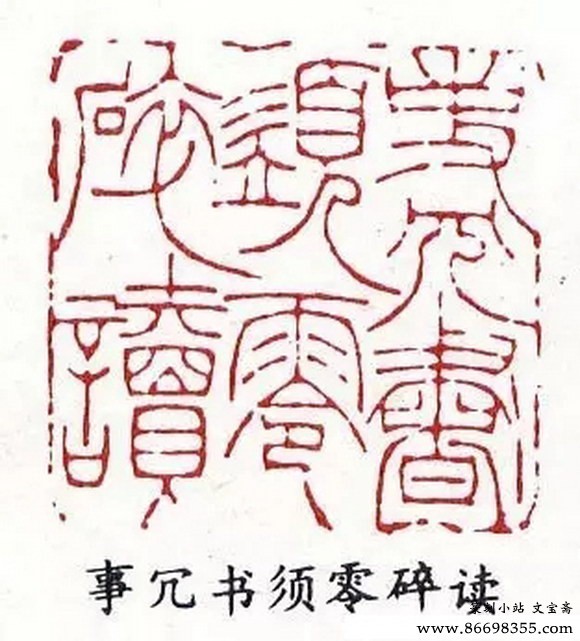 事冗書
須零
碎讀
事冗书须零碎读
篆刻小站 文宝斋
www.86698355.com